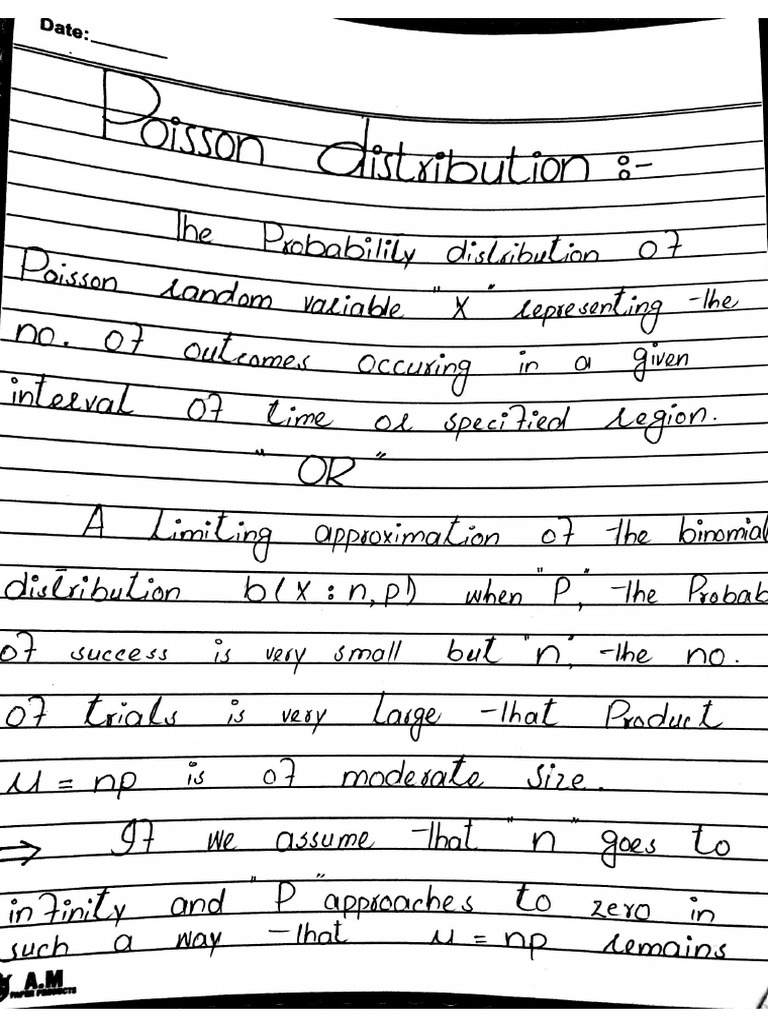 Date:
Poisson distribution :-
The Probability distribution of
Poisson random variable "X" representing the
no. of outcomes occuring in a given
interval of time or specified region.
"OR"
A limiting approximation of the binomial
distribution b(x : n, p) when "P", the Probab
of success is very small but "n", the no.
of trials is very large that Product
μ = np is of moderate size.
⇒ If we assume that "n" goes to
infinity and "P" approaches to zero in
such a way that μ = np remains
A.M
PAPER PRODUCTS